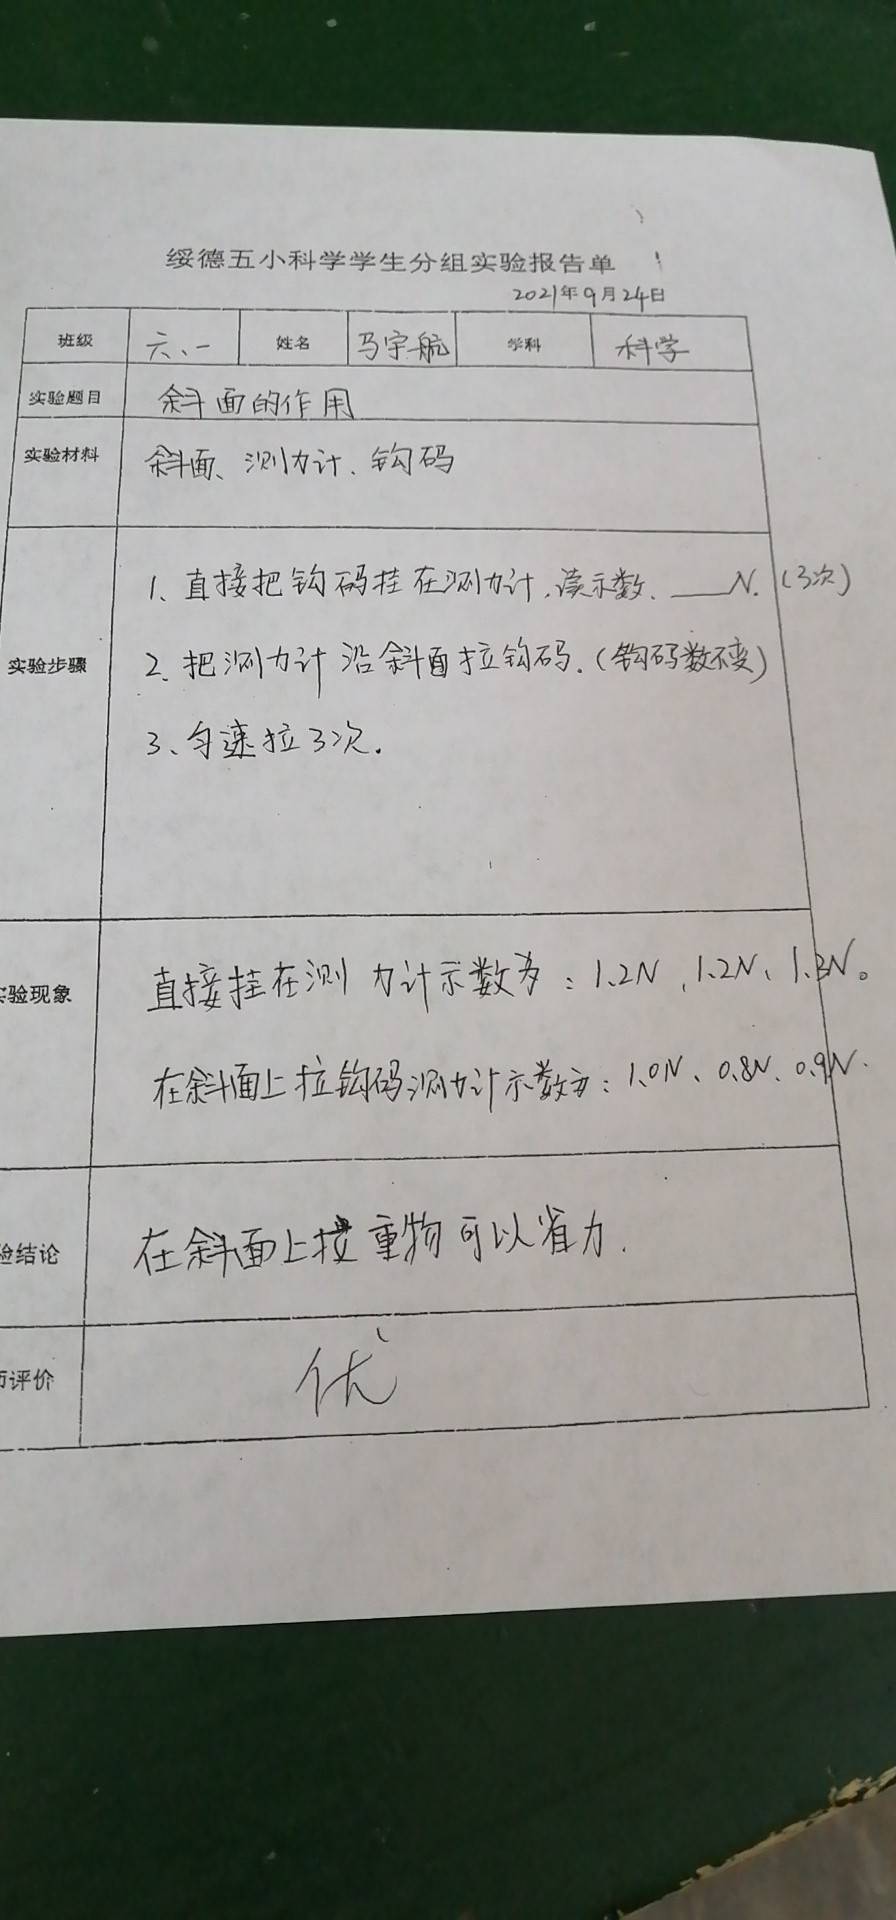 绥德五小科学学生分组实验报告单
2021年9月24日
班级 六、一 姓名 马宇航 学科 科学
实验题目 斜面的作用
实验材料 斜面、测力计、钩码
1、直接把钩码挂在测力计,读示数、___N.(3次)
实验步骤 2、把测力计沿斜面拉钩码.(钩码数不变)
3、匀速拉3次.
实验现象 直接挂在测力计示数为:1.2N、1.2N、1.3N。
在斜面上拉钩码测力计示数为:1.0N、0.8N、0.9N.
验结论 在斜面上 重物可以省力.
师评价 优